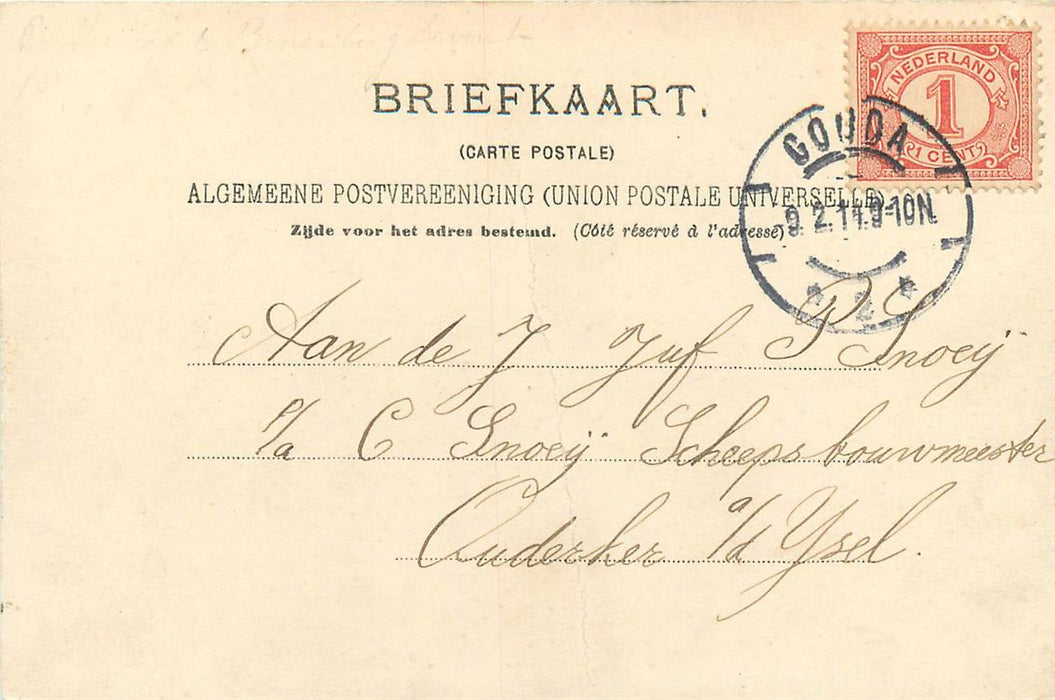 BRIEFKAART.
(CARTE POSTALE)
ALGEMEENE POSTVEREENIGING (UNION POSTALE UNIVERSELLE).
Zijde voor het adres bestemd. (Côté réservé à l'adresse)
NEDERLAND
1
1 CENT
GOUDA
9-10N.
2
Aan de J Juf P Snoeij
p/a C Snoeij Scheepsbouwmeester
Ouderker a/d Ysel.